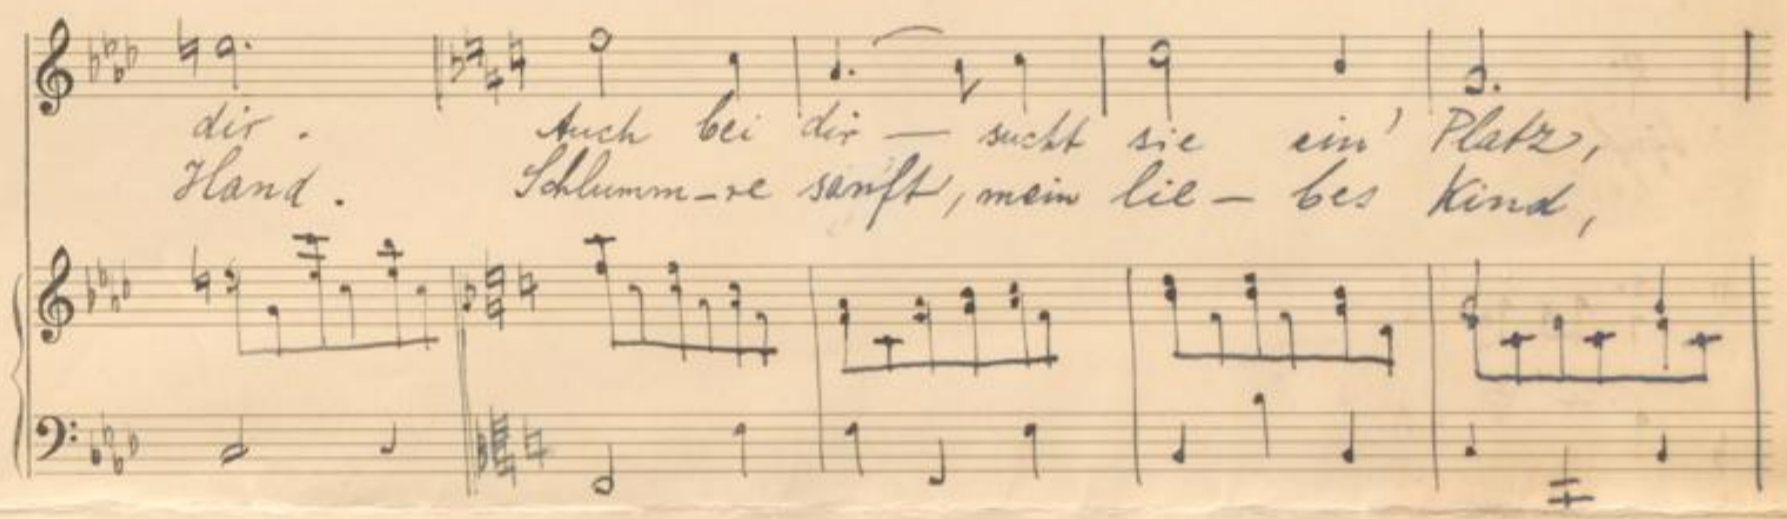 dir. Auch bei dir — sucht sie ein' Platz,
Hand. Schlumm-re sanft, mein lie - bes Kind,